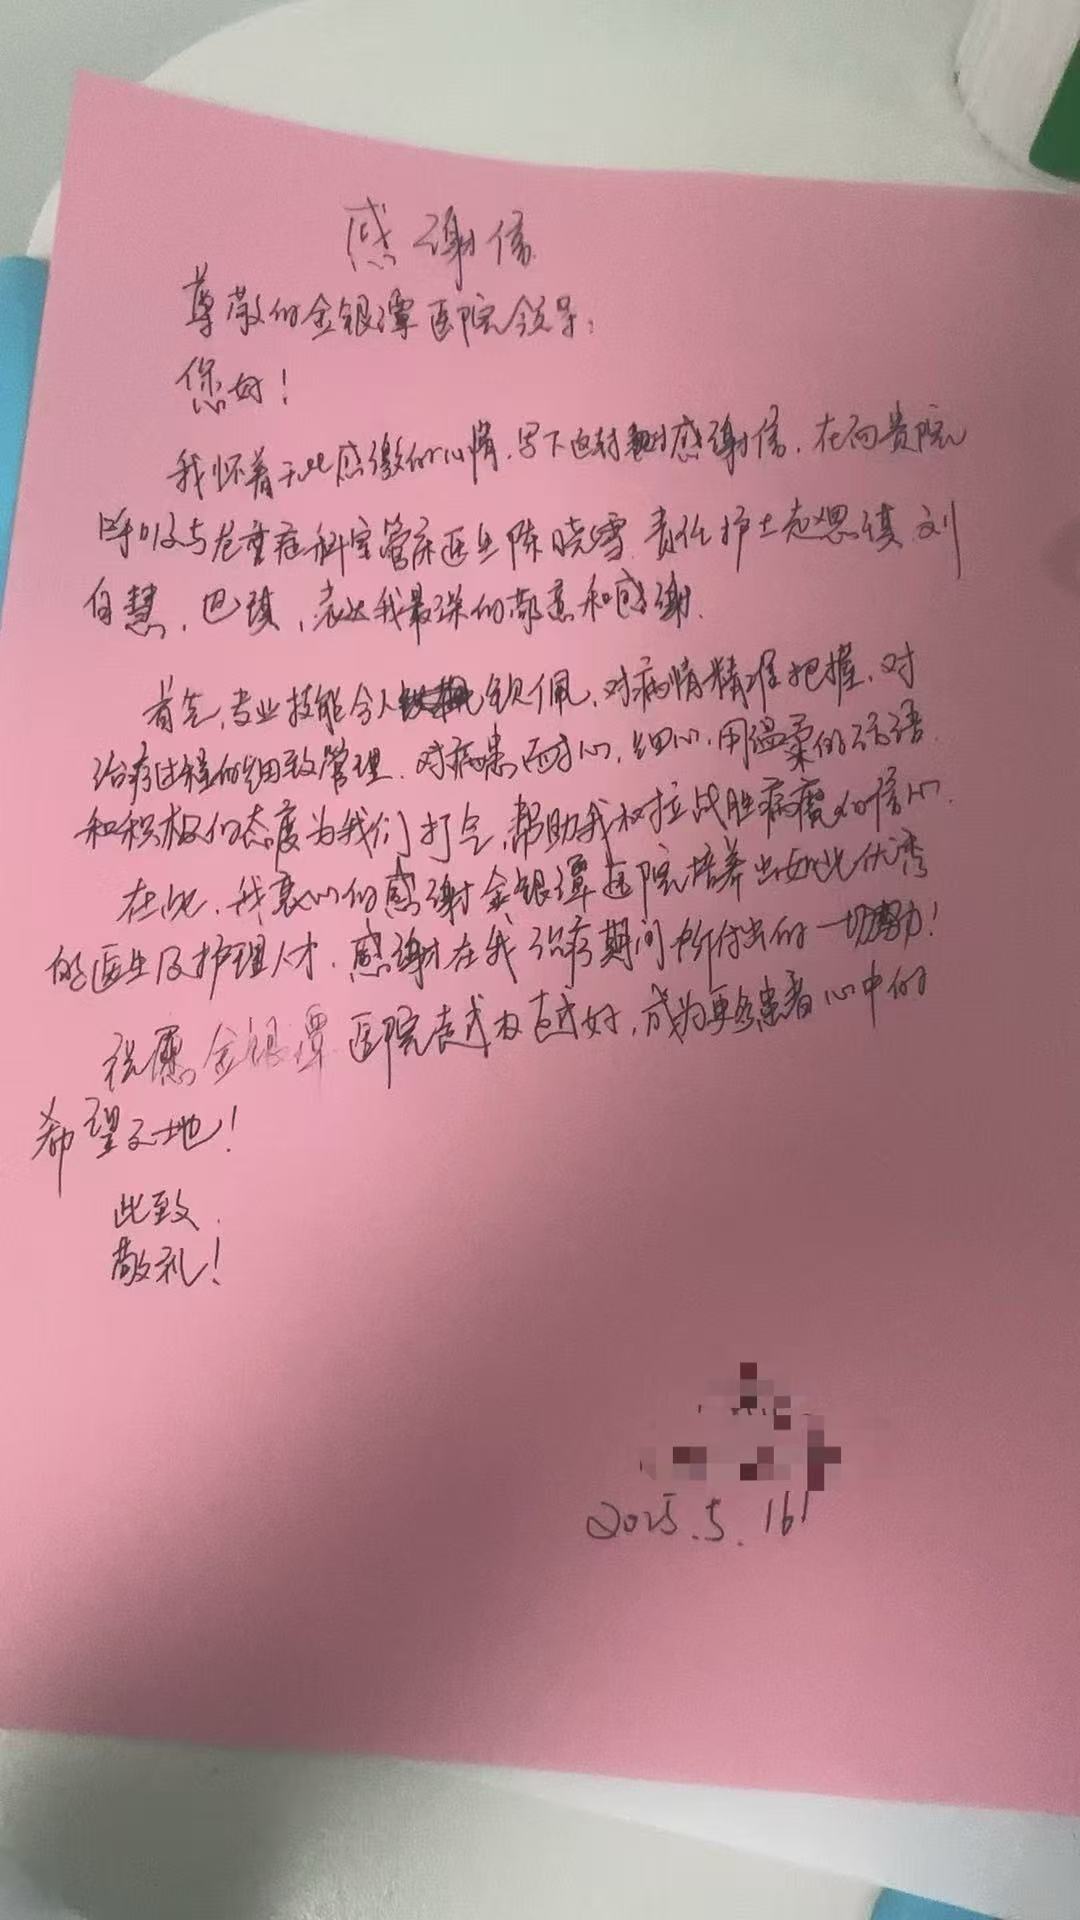 感谢信
尊敬的金银潭医院领导：
您好！
我怀着无比感激的心情，写下这封感谢信，在向贵院
呼吸与危重症科室管床医生陈晓雪 责任护士赵思偀 刘
自慧，巴瑱，表达我最深的敬意和感谢．
首先，专业技能令人钦佩，对病情精准把握，对
治疗过程的细致管理．对病患耐心，细心，用温柔的话语
和积极的态度为我们打气，帮助我树拉战胜病魔的信心．
在此，我衷心的感谢金银潭医院培养出如此优秀
的医生及护理人才．感谢在我治疗期间所付出的一切努力！
祝愿金银潭医院越来越好，成为更多患者心中的
希望之地！
此致
敬礼！
2025.5.16